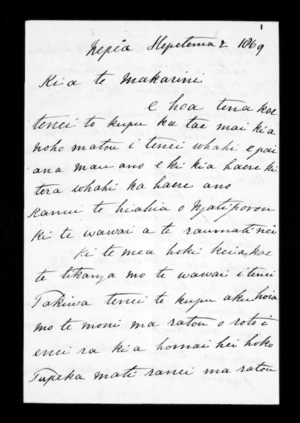 1
Nepia Hepetema 2 1869
Kia te Makarini
E hoa tena koe
tenei to kupu ka tae mai kia
noho matou i tenei whahi e pai
ana mau ano e ki kia haere ki
tera whahi ka haere ano
Kanui te hiahia o Ngatiporou
ki te wawai a te raumati nei
ki te mea hoki keia koe
te tikanga mo te wawai i tenei
Takiwa tenei te kupu aku hoia
mo te moni ma ratou o roto i
enei ra kia homai hei hoko
Tupeka mati ranei ma ratou